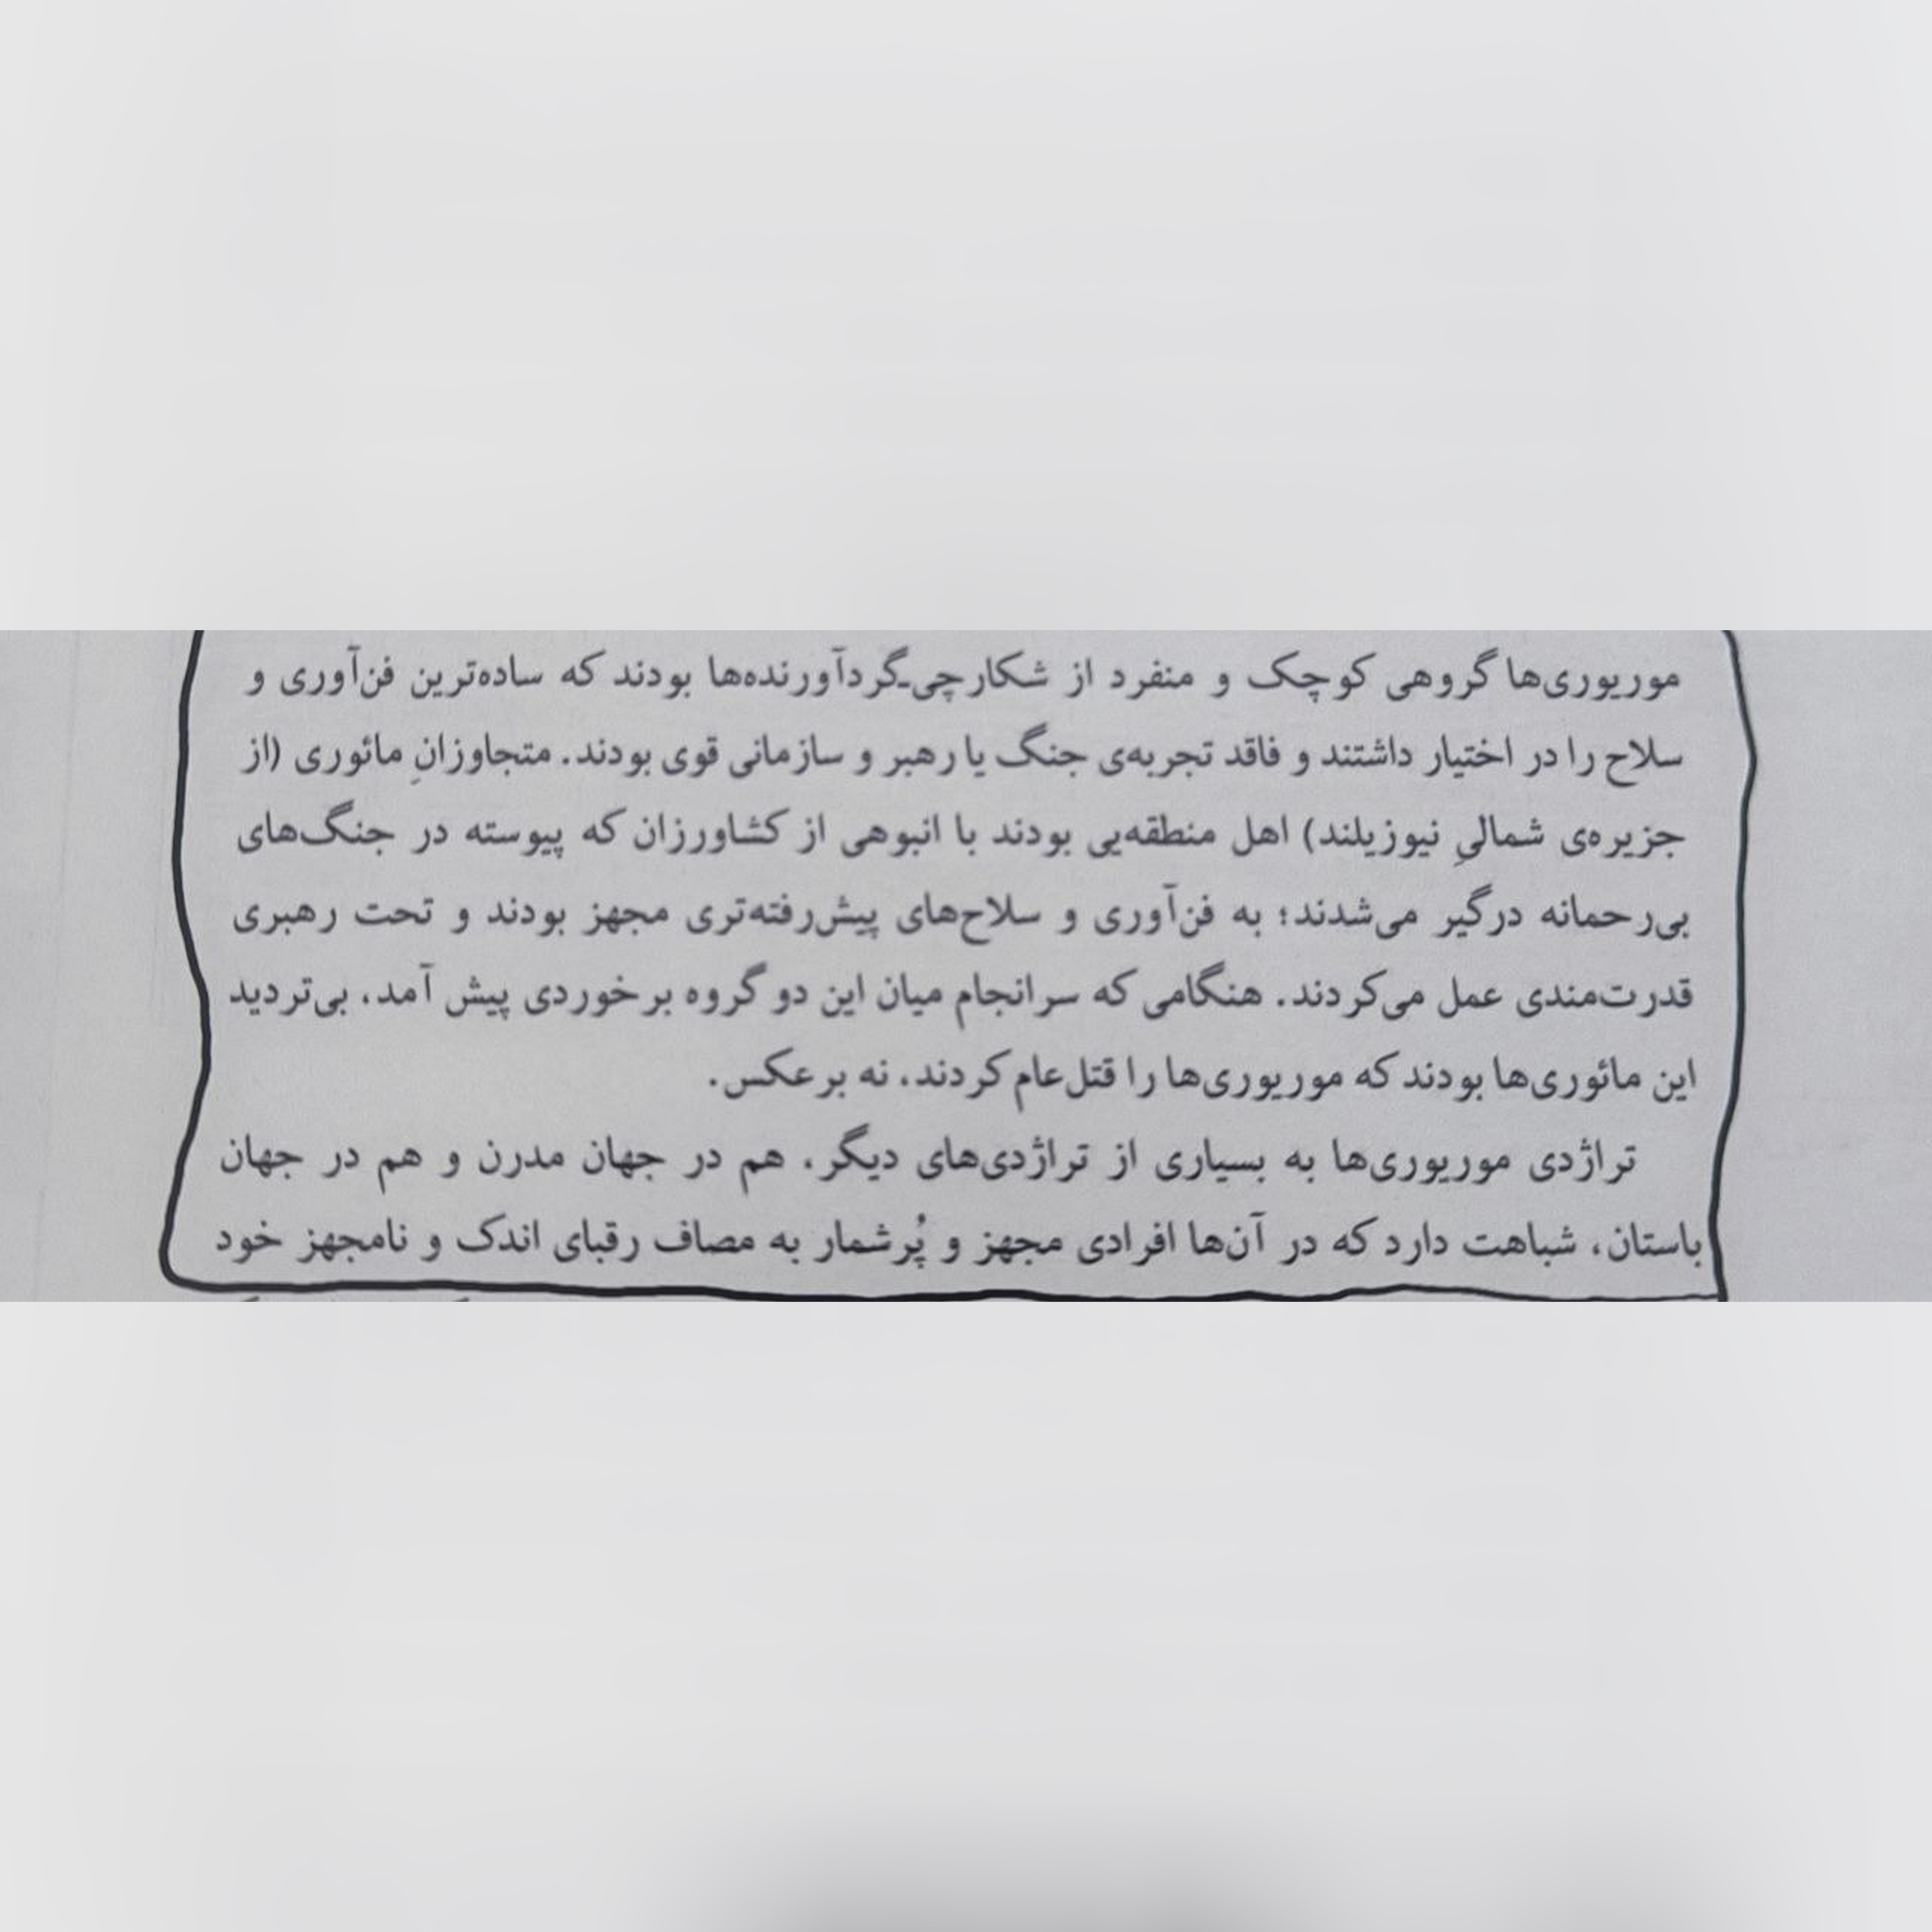 موریوری‌ها گروهی کوچک و منفرد از شکارچی‌ـگردآورنده‌ها بودند که ساده‌ترین فن‌آوری و
سلاح را در اختیار داشتند و فاقد تجربه‌ی جنگ یا رهبر و سازمانی قوی بودند. متجاوزانِ مائوری (از
جزیره‌ی شمالیِ نیوزیلند) اهل منطقه‌یی بودند با انبوهی از کشاورزان که پیوسته در جنگ‌های
بی‌رحمانه درگیر می‌شدند؛ به فن‌آوری و سلاح‌های پیش‌رفته‌تری مجهز بودند و تحت رهبری
قدرت‌مندی عمل می‌کردند. هنگامی که سرانجام میان این دو گروه برخوردی پیش آمد، بی‌تردید
این مائوری‌ها بودند که موریوری‌ها را قتل‌عام کردند، نه برعکس.
تراژدی موریوری‌ها به بسیاری از تراژدی‌های دیگر، هم در جهان مدرن و هم در جهان
باستان، شباهت دارد که در آن‌ها افرادی مجهز و پُرشمار به مصاف رقبای اندک و نامجهز خود